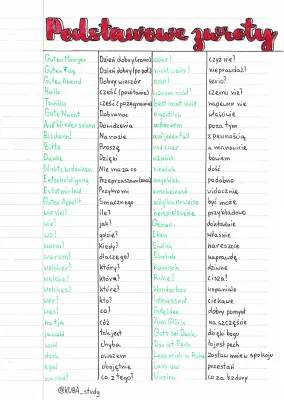 Podstawowe zwroty
Guten Morgen Dzień dobry (rano) oder! czyż nie!
Guten Tag Dzień dobry (po poł) nicht wahr? nieprawdaż?
Guten Abend Dobry wieczór echt? serio?
Hallo cześć (powitanie) warum nicht? czemu nie?
Tschüss cześć (pożegnanie) bestimmt nicht napewno nie
Gute Nacht Dobranoc eigentlich właściwie
Auf Wiedersehen Dowidzenia außerdem poza tym
Bis dann! Na razie auf jeden Fall z pewnością
Bitte Proszę und zwar a mianowicie
Danke Dzięki nämlich bowiem
Nichts zu danken Nie ma za co ziemlich dość
Entschuldigung Przepraszam angeblich podobno
Es tut mir leid Przykro mi anscheinend widocznie
Guten Appetit Smacznego möglicherweise być może
wie viel? ile? beispielsweise przykładowo
wie! jak? Genau dokładnie
wo! gdzie? Eben właśnie
wann! Kiedy? Endlich nareszcie
warum! dlaczego! Ehrlich naprawdę
welcher! który! Komisch dziwne
welche! która? Ruhe! cisza!
welches! które? Wunderbar wspaniale
wer! kto? Interessant ciekawe
was! co! Gute Idee dobry pomysł
na ja cóż Zum Glück na szczęście
jawohl tak jest Gott sei Dank dzięki bogu
wohl chyba Das ist Pech to jest pech
doch owszem Lass mich in Ruhe zostaw mnie w spokoju
egal obojętnie Lass das przestań
na und! co z tego? Unsinn co za bzdury
@KUBA_study